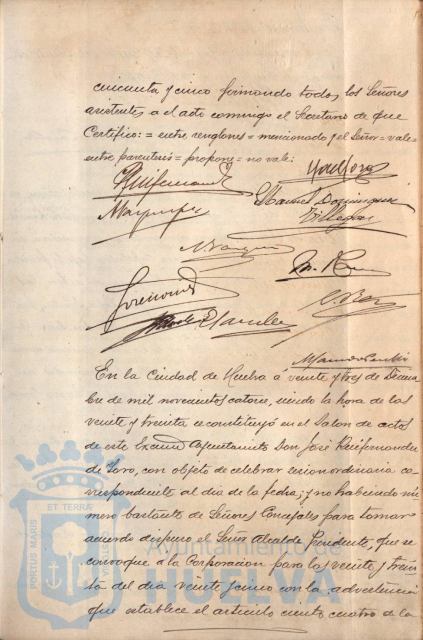 cincuenta y cinco firmando todos los Señores
asistentes a el acto conmigo el Secretario de que
Certifico: = entre renglones = mencionado y el Señor = vale =
entre parentesis = propone = no vale:
Manuel Dominguez
Villegas
En la Ciudad de Huelva á veinte y tres de Diciem
bre de mil novecientos catorce, siendo la hora de las
veinte y treinta se constituyó en el Salon de actos
de este Excmo Ayuntamiento Don José Ruifernandez
de Toro, con objeto de celebrar sesion ordinaria co
rrespondiente al dia de la fecha; y no habiendo nú
mero bastante de Señores Concejales para tomar
acuerdo dispuso el Señor Alcalde Presidente, que se
convoque á la Corporacion para las veinte y trein
ta del dia veinte y cinco con la advertencia
que establece el articulo ciento cuatro de la
PORTUS MARIS ET TERRÆ
Ayuntamiento de
HUELVA